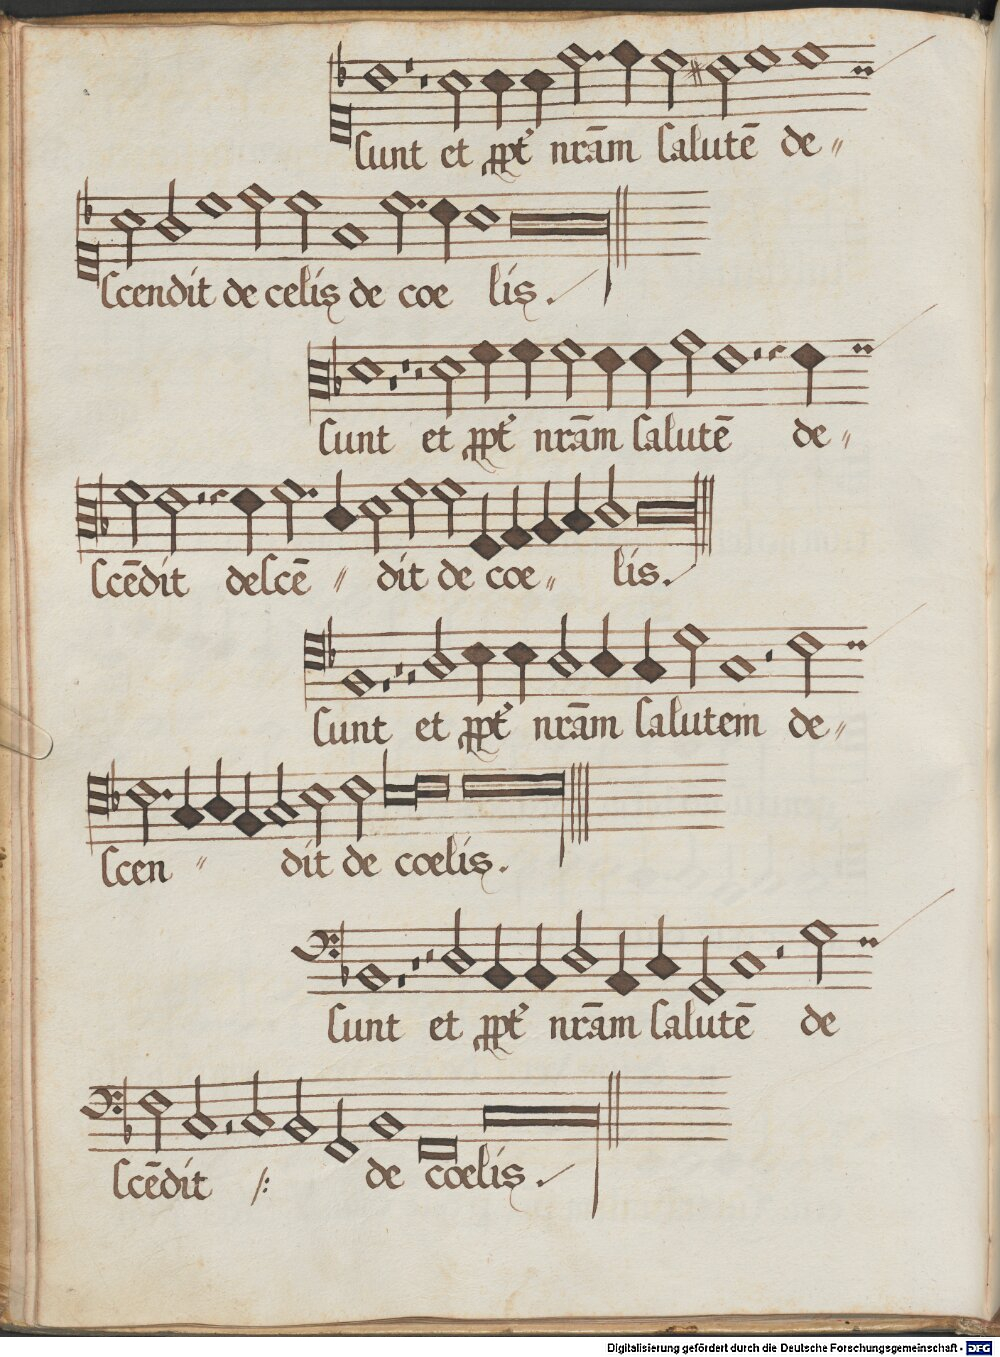 sunt et ꝓpt̉ nr̄am salutē de〃
scendit de celis de coe lis.
sunt et ꝓpt̉ nr̄am salutē de〃
scēdit descē 〃 dit de coe〃 lis.
sunt et ꝓpt̉ nr̄am salutem de〃
scen 〃 dit de coelis.
sunt et ꝓpt̉ nr̄am salutē de
scēdit /: de coelis.
Digitalisierung gefördert durch die Deutsche Forschungsgemeinschaft - DFG